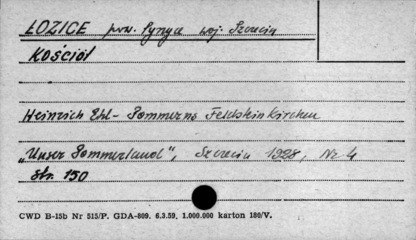 ŁOZICE pow. Pyrzyce woj. Szczecin
Kościół
Heinrich Ehl - Pommerns Feldsteinkirchen
„Unser Pommerland", Szczecin 1928, Nr 4
str. 150
CWD B-15b Nr 515/P. GDA-809. 6.3.59, 1.000.000 karton 180/V.